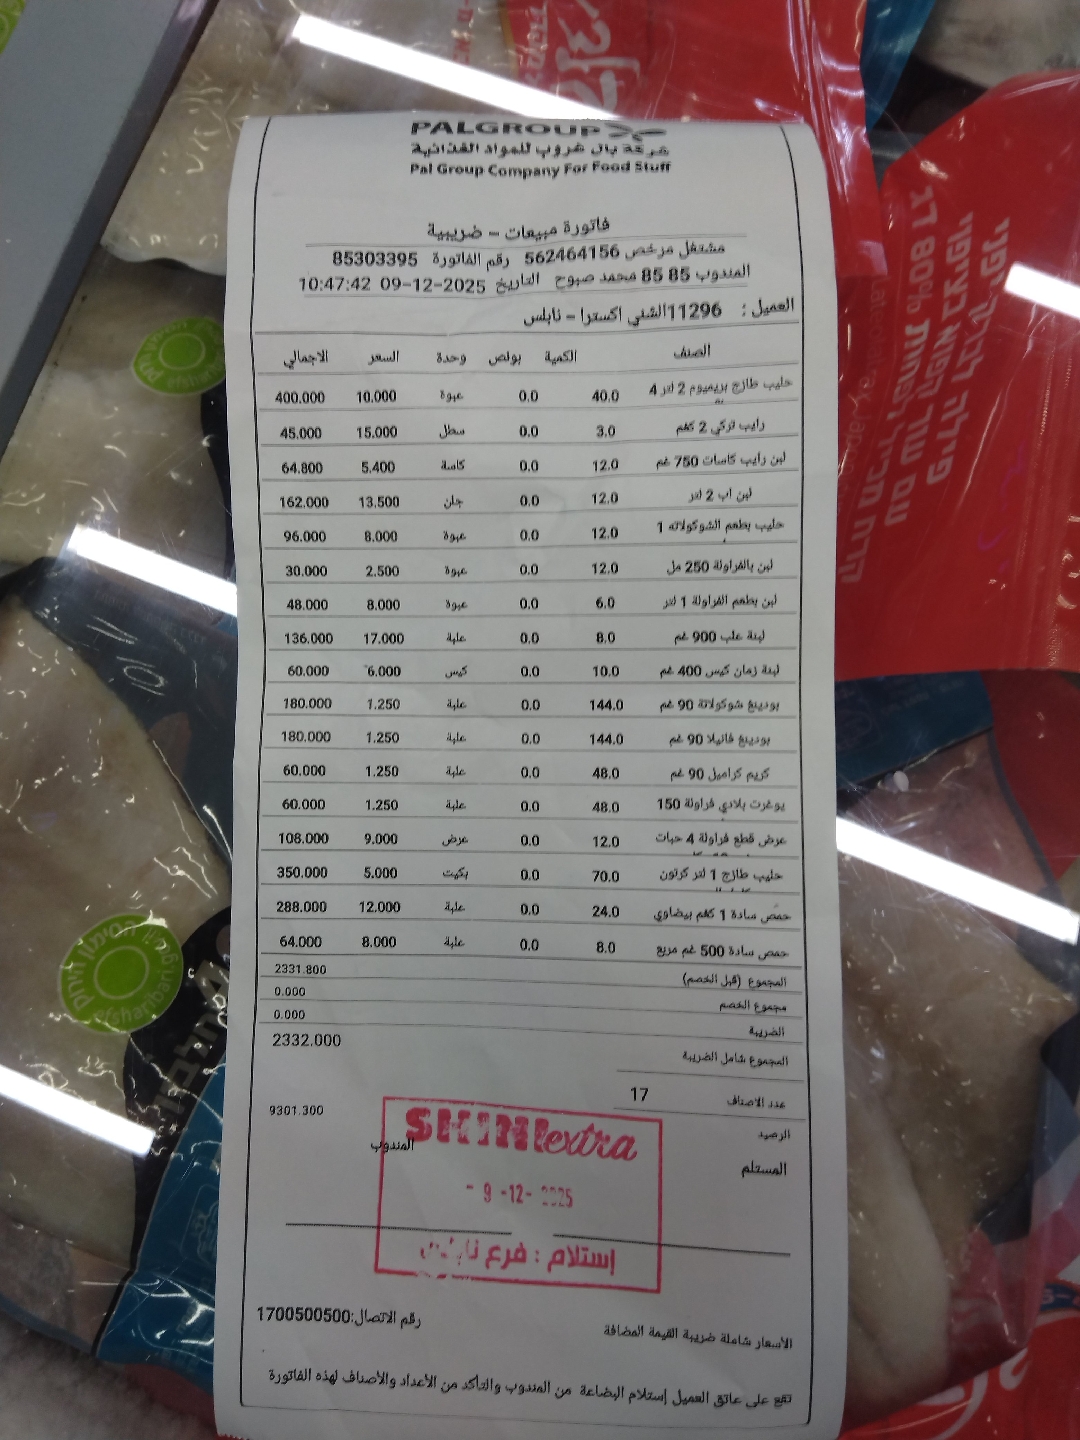 PALGROUP
شركة بال غروب للمواد الغذائية
Pal Group Company For Food Stuff
فاتورة مبيعات – ضريبية
مشتغل مرخص 562464156 رقم الفاتورة 85303395
المندوب 85 85 محمد صبوح التاريخ 09-12-2025 10:47:42
العميل : 11296الشني اكسترا – نابلس
الصنف الكمية بونص وحدة السعر الاجمالي
حليب طازج بريميوم 2 لتر 4 40.0 0.0 عبوة 10.000 400.000
رايب تركي 2 كغم 3.0 0.0 سطل 15.000 45.000
لبن رايب كاسات 750 غم 12.0 0.0 كاسة 5.400 64.800
لبن اب 2 لتر 12.0 0.0 جان 13.500 162.000
حليب بطعم الشوكولاته 1 12.0 0.0 عبوة 8.000 96.000
لبن بالفراولة 250 مل 12.0 0.0 عبوة 2.500 30.000
لبن بطعم الفراولة 1 لتر 6.0 0.0 عبوة 8.000 48.000
لبنة علب 900 غم 8.0 0.0 علبة 17.000 136.000
لبنة زمان كيس 400 غم 10.0 0.0 كيس 6.000 60.000
بودينغ شوكولاتة 90 غم 144.0 0.0 علبة 1.250 180.000
بودينغ فانيلا 90 غم 144.0 0.0 علبة 1.250 180.000
كريم كراميل 90 غم 48.0 0.0 علبة 1.250 60.000
يوغرت بلادي فراولة 150 48.0 0.0 علبة 1.250 60.000
عرض قطع فراولة 4 حبات 12.0 0.0 عرض 9.000 108.000
حليب طازج 1 لتر كرتون 70.0 0.0 بكيت 5.000 350.000
حمص سادة 1 كغم بيضاوي 24.0 0.0 علبة 12.000 288.000
حمص سادة 500 غم مربع 8.0 0.0 علبة 8.000 64.000
المجموع (قبل الخصم) 2331.800
مجموع الخصم 0.000
الضريبة 0.000
المجموع شامل الضريبة 2332.000
عدد الاصناف 17
الرصيد 9301.300
المستلم المندوب
SHINI extra
- 9 -12- 2025
إستلام : فرع نابلس
رقم الاتصال:1700500500
الاسعار شاملة ضريبة القيمة المضافة
تقع على عاتق العميل إستلام البضاعة من المندوب والتأكد من الأعداد والأصناف لهذه الفاتورة